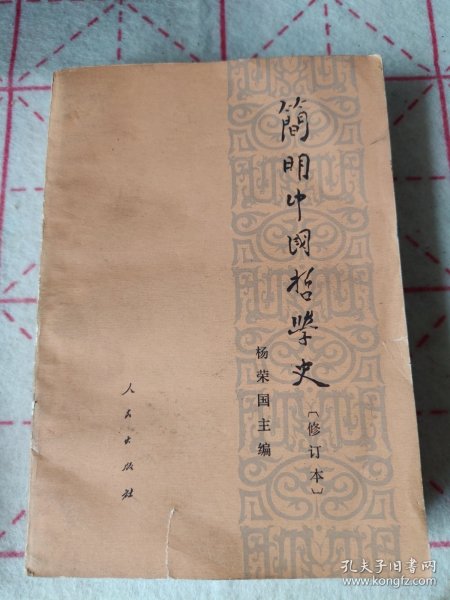 簡明中国哲学史
〔修订本〕
杨荣国主编
人民出版社
孔夫子旧书网
www.kongfz.com